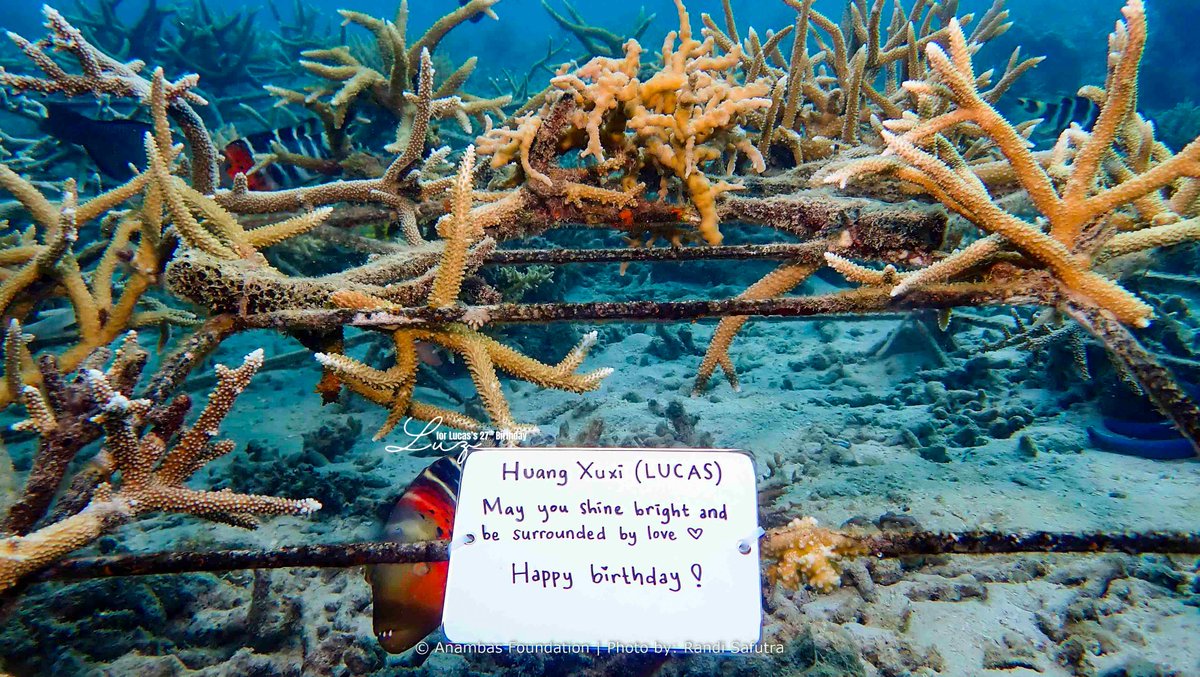 for Lucas's 27th Birthday
Luz
Huang Xuxi (LUCAS)
May you shine bright and
be surrounded by love ♡
Happy birthday!
© Anambas Foundation | Photo by: Randi Safutra